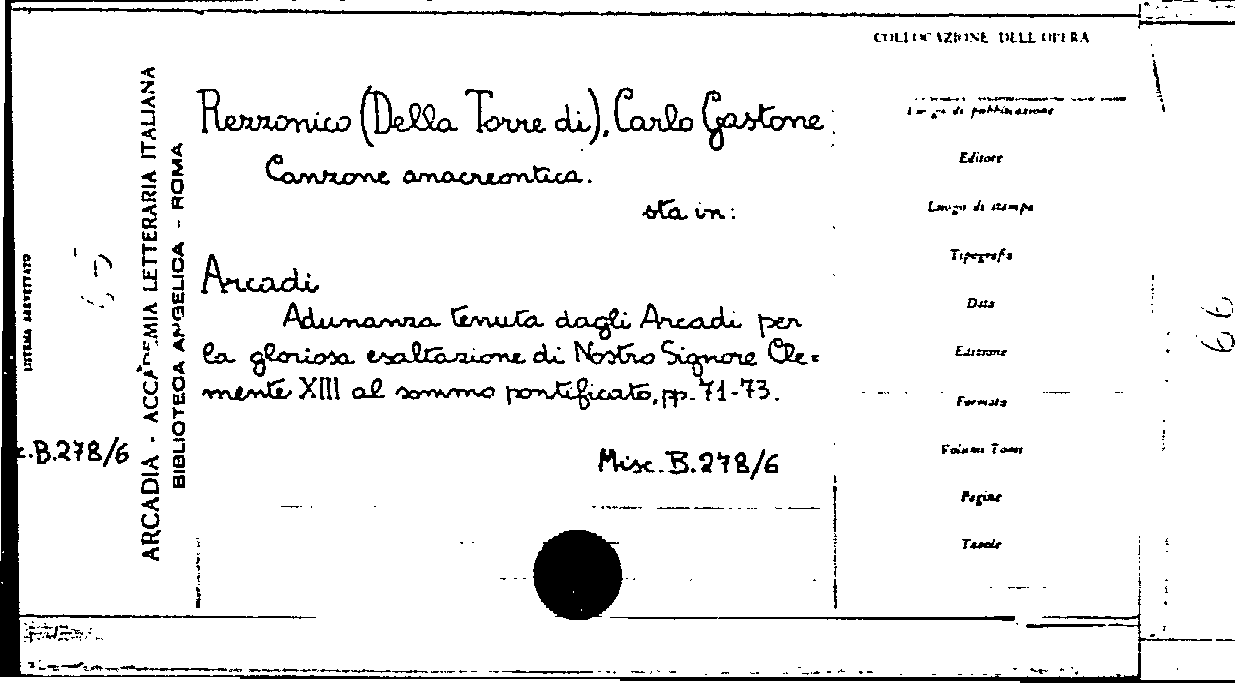 COLLOCAZIONE DELL'OPERA
Rezzonico (Della Torre di), Carlo Gastone
Canzone anacreontica.
sta in:
Arcadi
Adunanza tenuta dagli Arcadi per
la gloriosa esaltazione di Nostro Signore Cle=
mente XIII al sommo pontificato, pp. 71-73.
Misc. B.278/6
.B.278/6
ARCADIA - ACCADEMIA LETTERARIA ITALIANA
BIBLIOTECA ANGELICA - ROMA
65
Luogo di pubblicazione
Editore
Luogo di stampa
Tipografia
Data
Edizione
Formato
Volumi Tomi
Pagine
Tavole
66